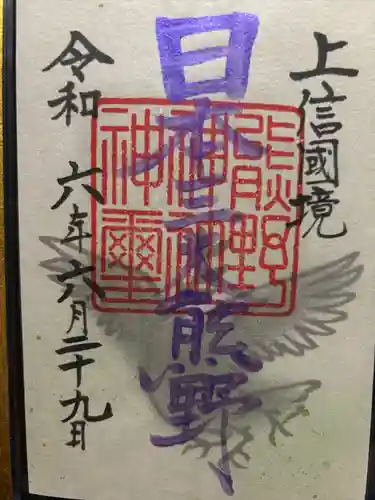 上信國境
日本三大熊野
令和 六年六月二十九日
熊野
神璽